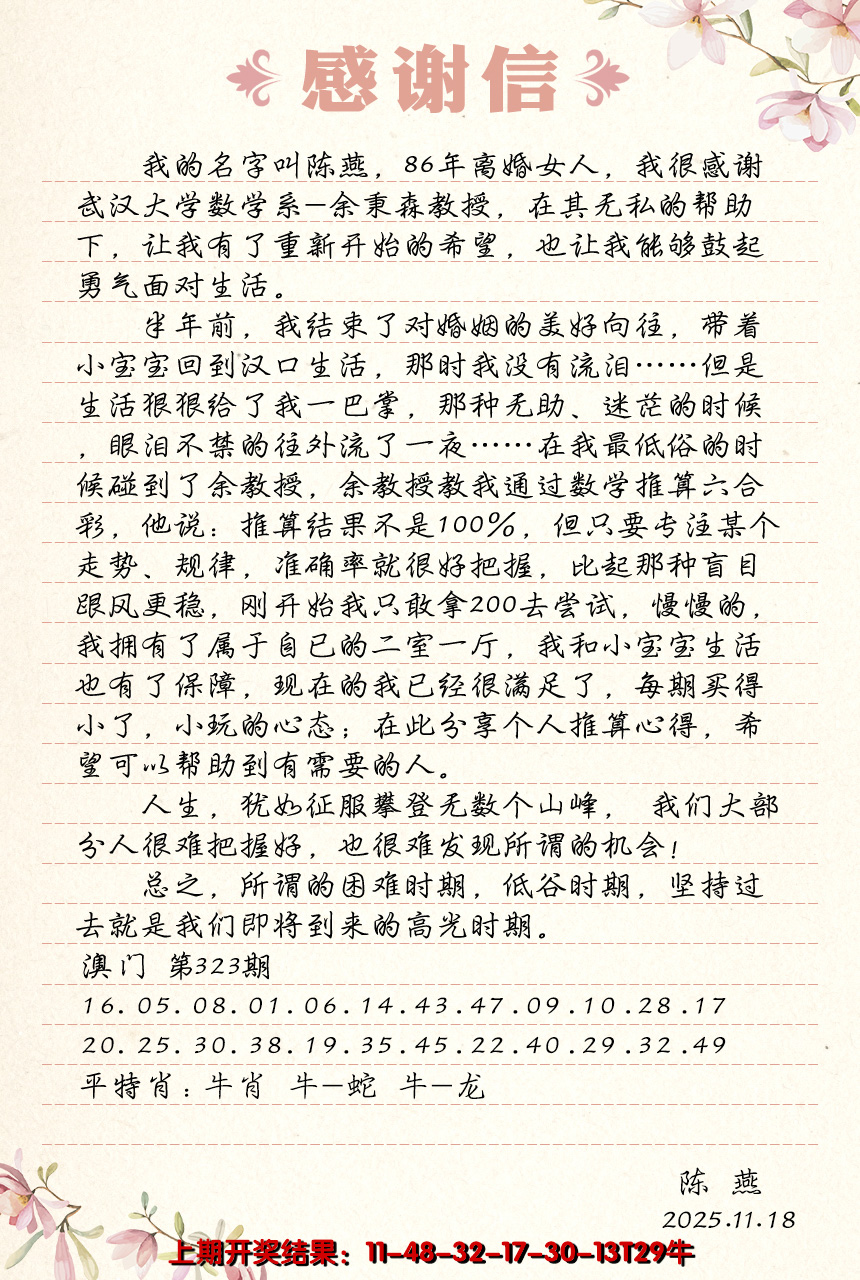 感谢信
我的名字叫陈燕，86年离婚女人，我很感谢
武汉大学数学系—余秉森教授，在其无私的帮助
下，让我有了重新开始的希望，也让我能够鼓起
勇气面对生活。
半年前，我结束了对婚姻的美好向往，带着
小宝宝回到汉口生活，那时我没有流泪……但是
生活狠狠给了我一巴掌，那种无助、迷茫的时候
，眼泪不禁的往外流了一夜……在我最低俗的时
候碰到了余教授，余教授教我通过数学推算六合
彩，他说：推算结果不是100%，但只要专注某个
走势、规律，准确率就很好把握，比起那种盲目
跟风更稳，刚开始我只敢拿200去尝试，慢慢的，
我拥有了属于自已的二室一厅，我和小宝宝生活
也有了保障，现在的我已经很满足了，每期买得
小了，小玩的心态；在此分享个人推算心得，希
望可以帮助到有需要的人。
人生，犹如征服攀登无数个山峰， 我们大部
分人很难把握好，也很难发现所谓的机会！
总之，所谓的困难时期，低谷时期，坚持过
去就是我们即将到来的高光时期。
澳门 第323期
16.05.08.01.06.14.43.47.09.10.28.17
20.25.30.38.19.35.45.22.40.29.32.49
平特肖：牛肖 牛—蛇 牛—龙
陈 燕
2025.11.18
上期开奖结果：11-48-32-17-30-13T29牛